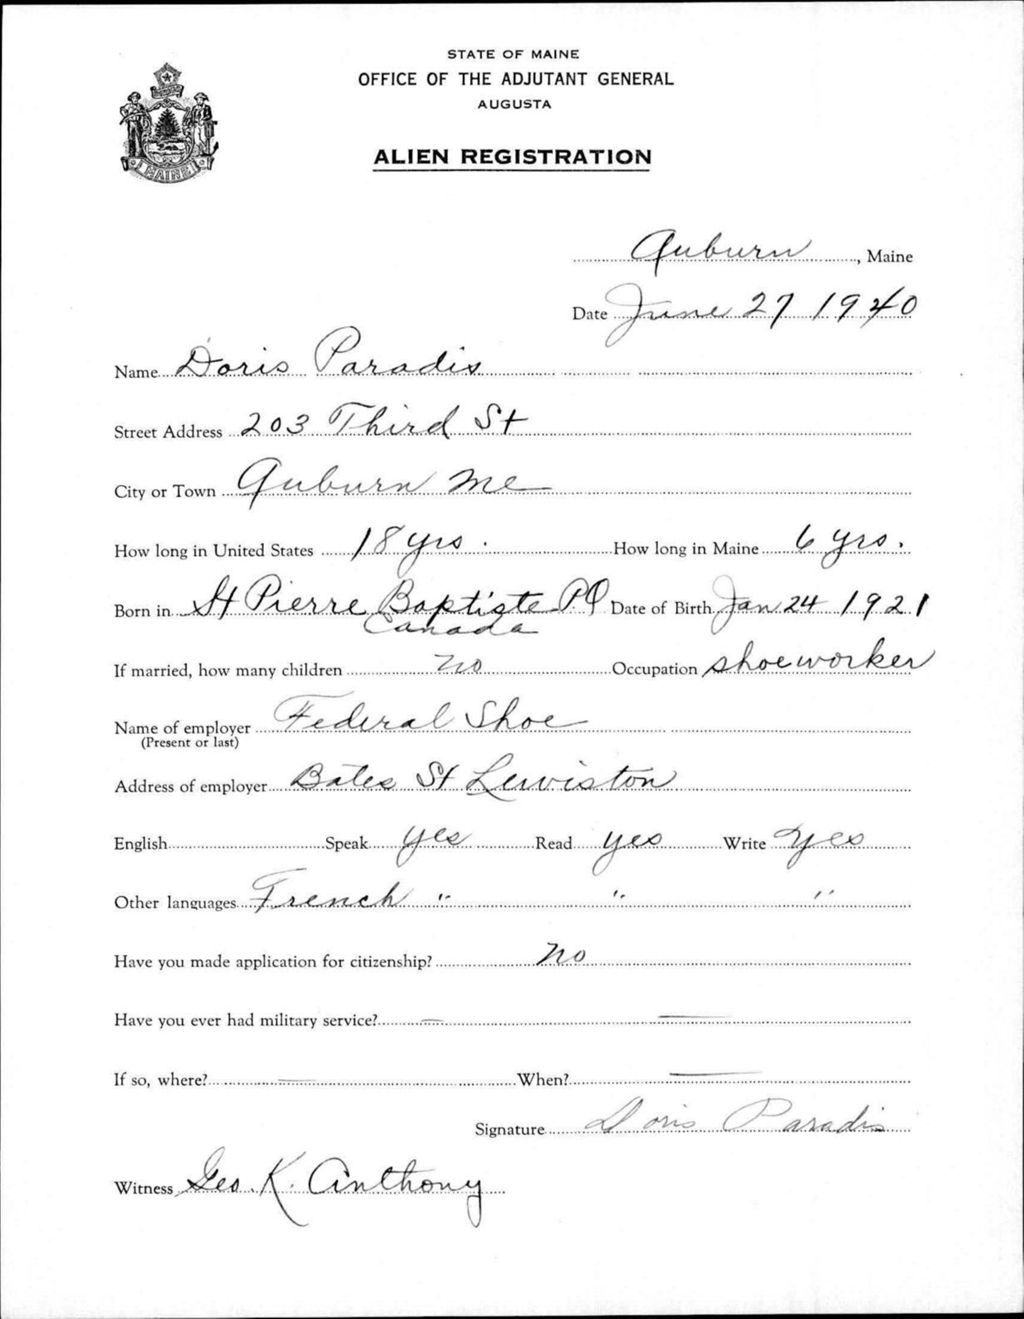 STATE OF MAINE
OFFICE OF THE ADJUTANT GENERAL
AUGUSTA
ALIEN REGISTRATION
MAINE
Auburn, Maine
Date June 27 1940
Name Doris Paradis
Street Address 203 Third St
City or Town Auburn Me
How long in United States 18 yrs. How long in Maine 6 yrs.
Born in St Pierre Baptiste PQ Date of Birth Jan 24 1921
Canada
If married, how many children no Occupation shoeworker
Name of employer Federal Shoe
(Present or last)
Address of employer Bates St Lewiston
English Speak yes Read yes Write yes
Other languages French " " "
Have you made application for citizenship? No
Have you ever had military service? — —
If so, where? — When? —
Signature Doris Paradis
Witness Geo. K. Anthony